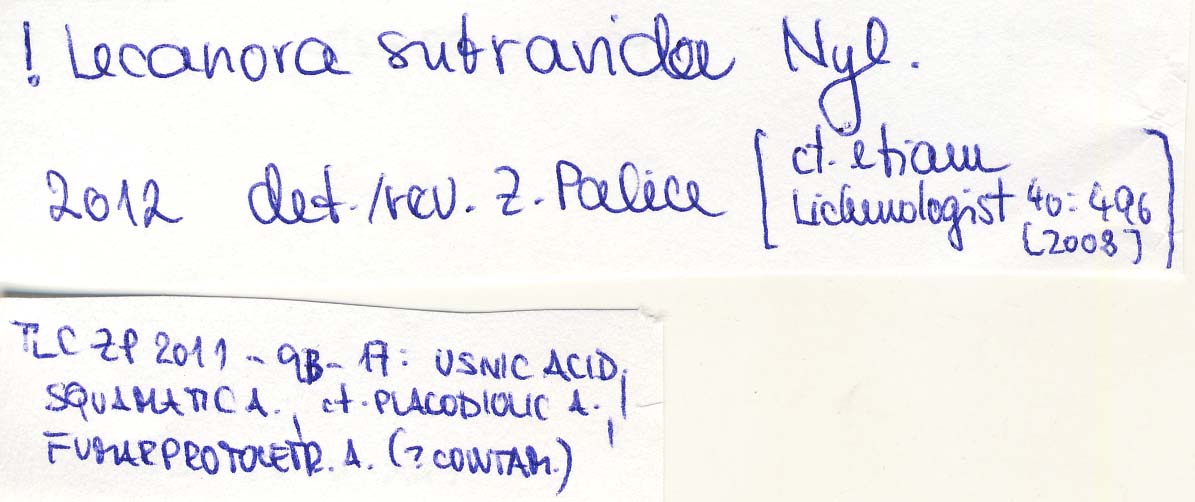 ! Lecanora subravida Nyl.
2012 det./rev. Z. Palice [cf. etiam
Lichenologist 40: 496
(2008)]
TLC ZP 2011 - 9B - 17: USNIC ACID,
SQUAMATIC A., cf. PLACODIOLIC A.,
FUMARPROTOCETR. A. (? CONTAM.)